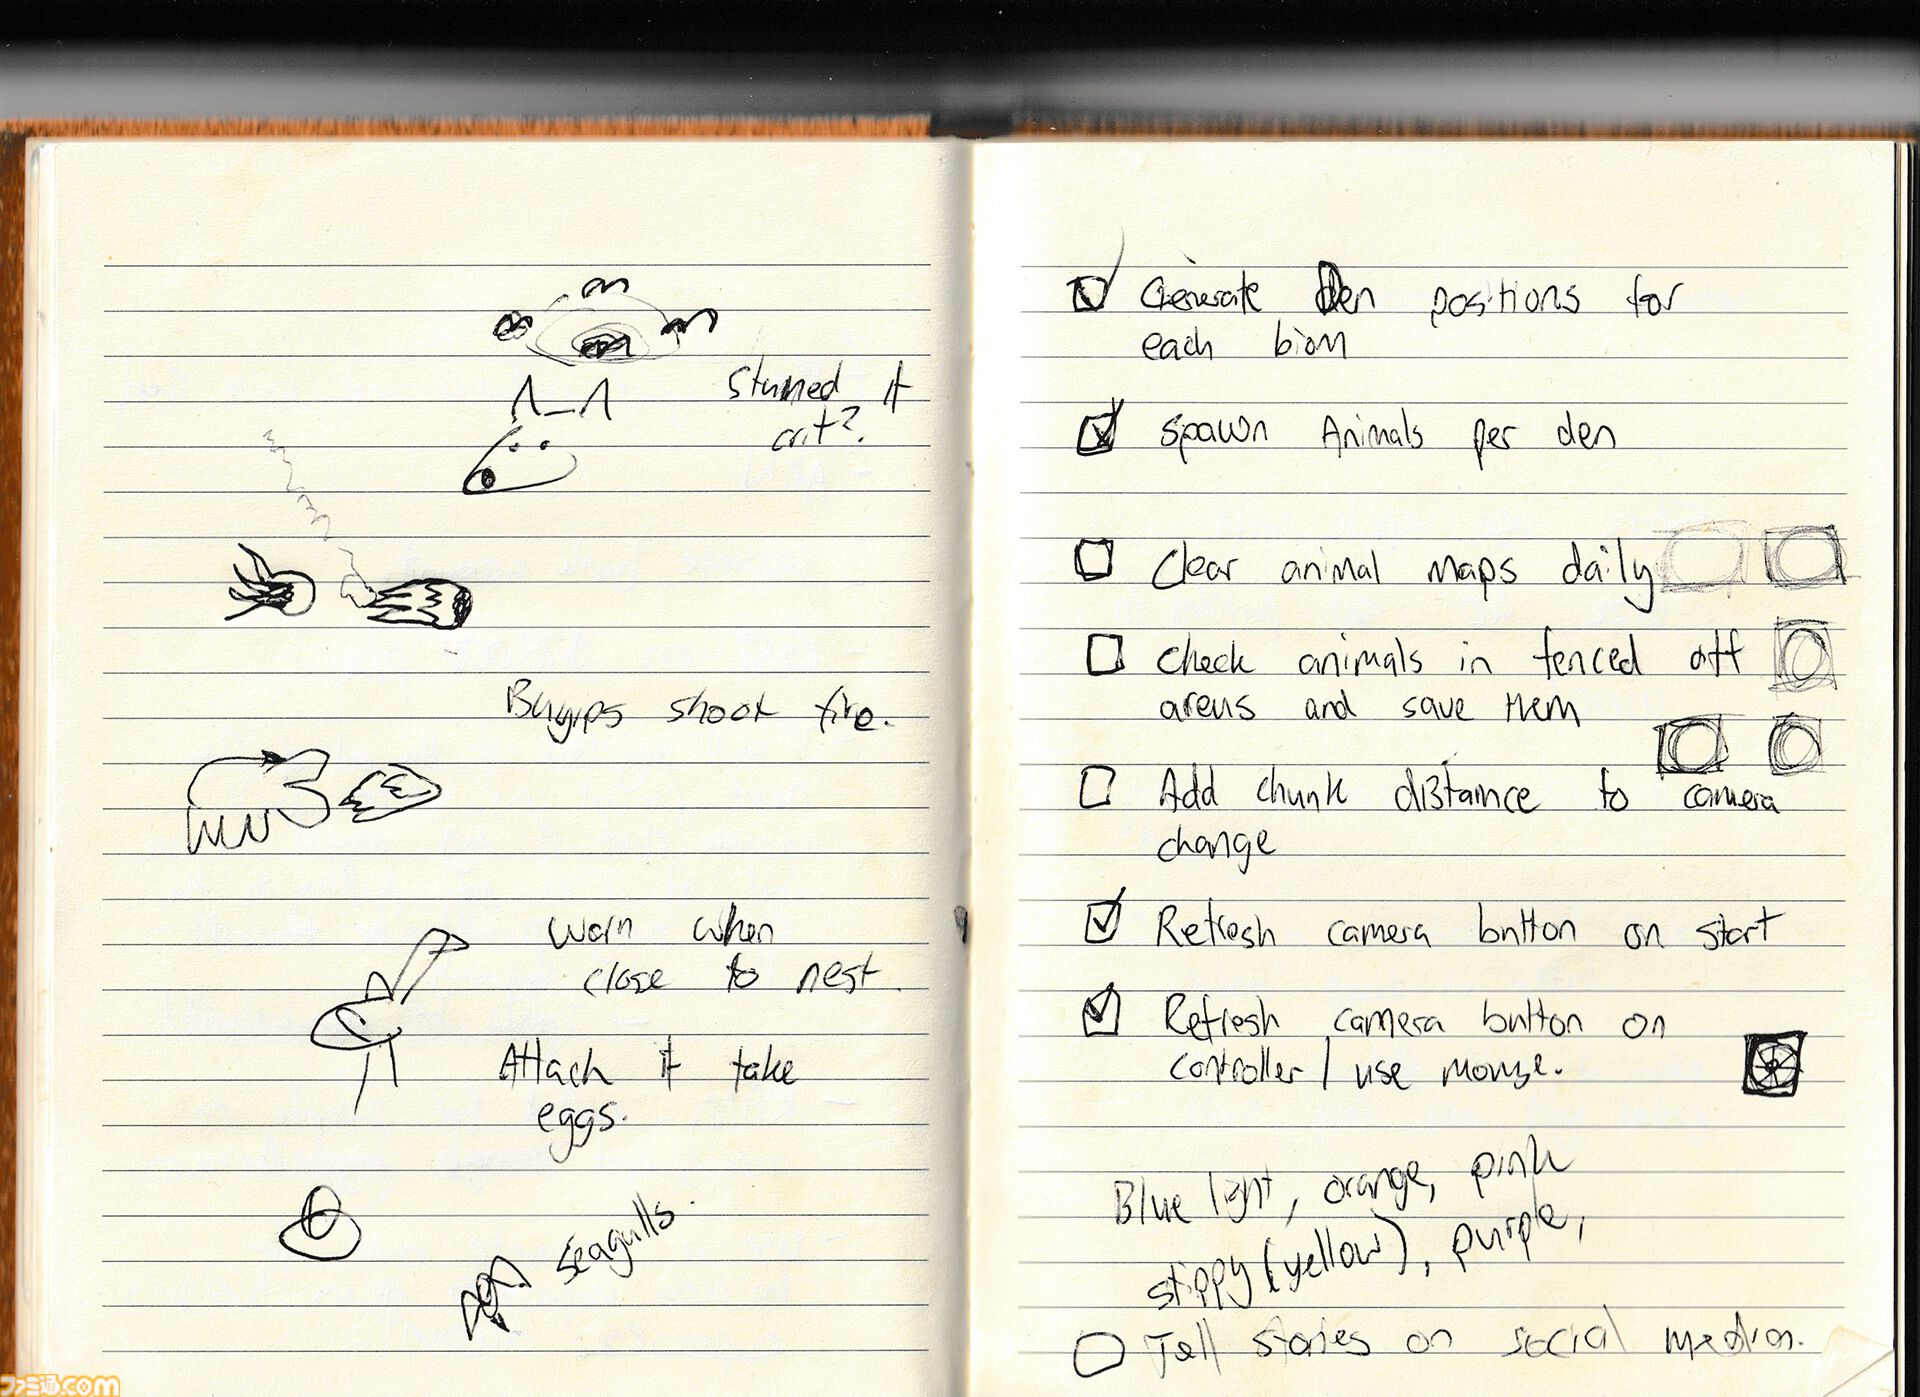 Stunned if
crit?
Bunyips shoot fire.
Warn when
close to nest.
Attack if take
eggs.
seagulls.
Generate Den positions for
each biom
spawn Animals per den
Clear animal maps daily
Check animals in fenced off
areas and save them
Add chunk distance to camera
change
Refresh camera button on start
Refresh camera button on
controller / use mouse.
Blue light, orange, pink
stippy (yellow), purple,
Tell stories on social media.
ファミ通.com